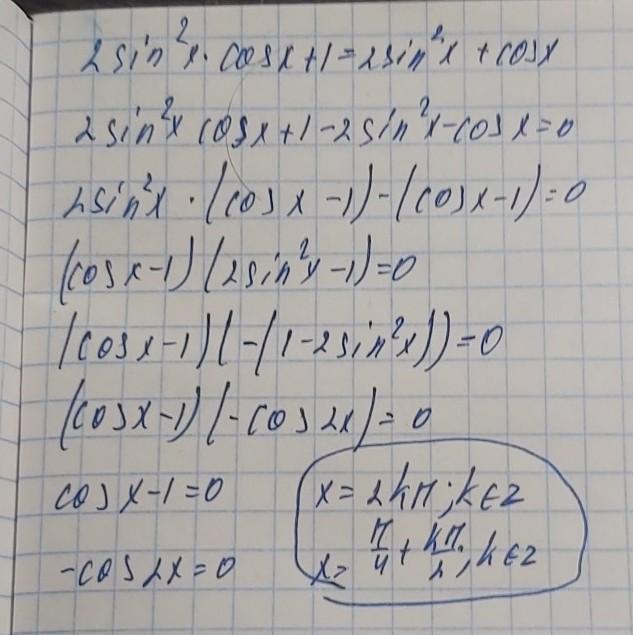 2sin²x · cosx+1=2sin²x + cosx
2sin²x cosx+1-2sin²x-cosx=0
2sin²x · (cosx-1)-(cosx-1)=0
(cosx-1)(2sin²x-1)=0
(cosx-1)(-(1-2sin²x))=0
(cosx-1)(-cos2x)=0
cosx-1=0
x=2kπ; k∈z
-cos2x=0
x=π/4+kπ/2; k∈z